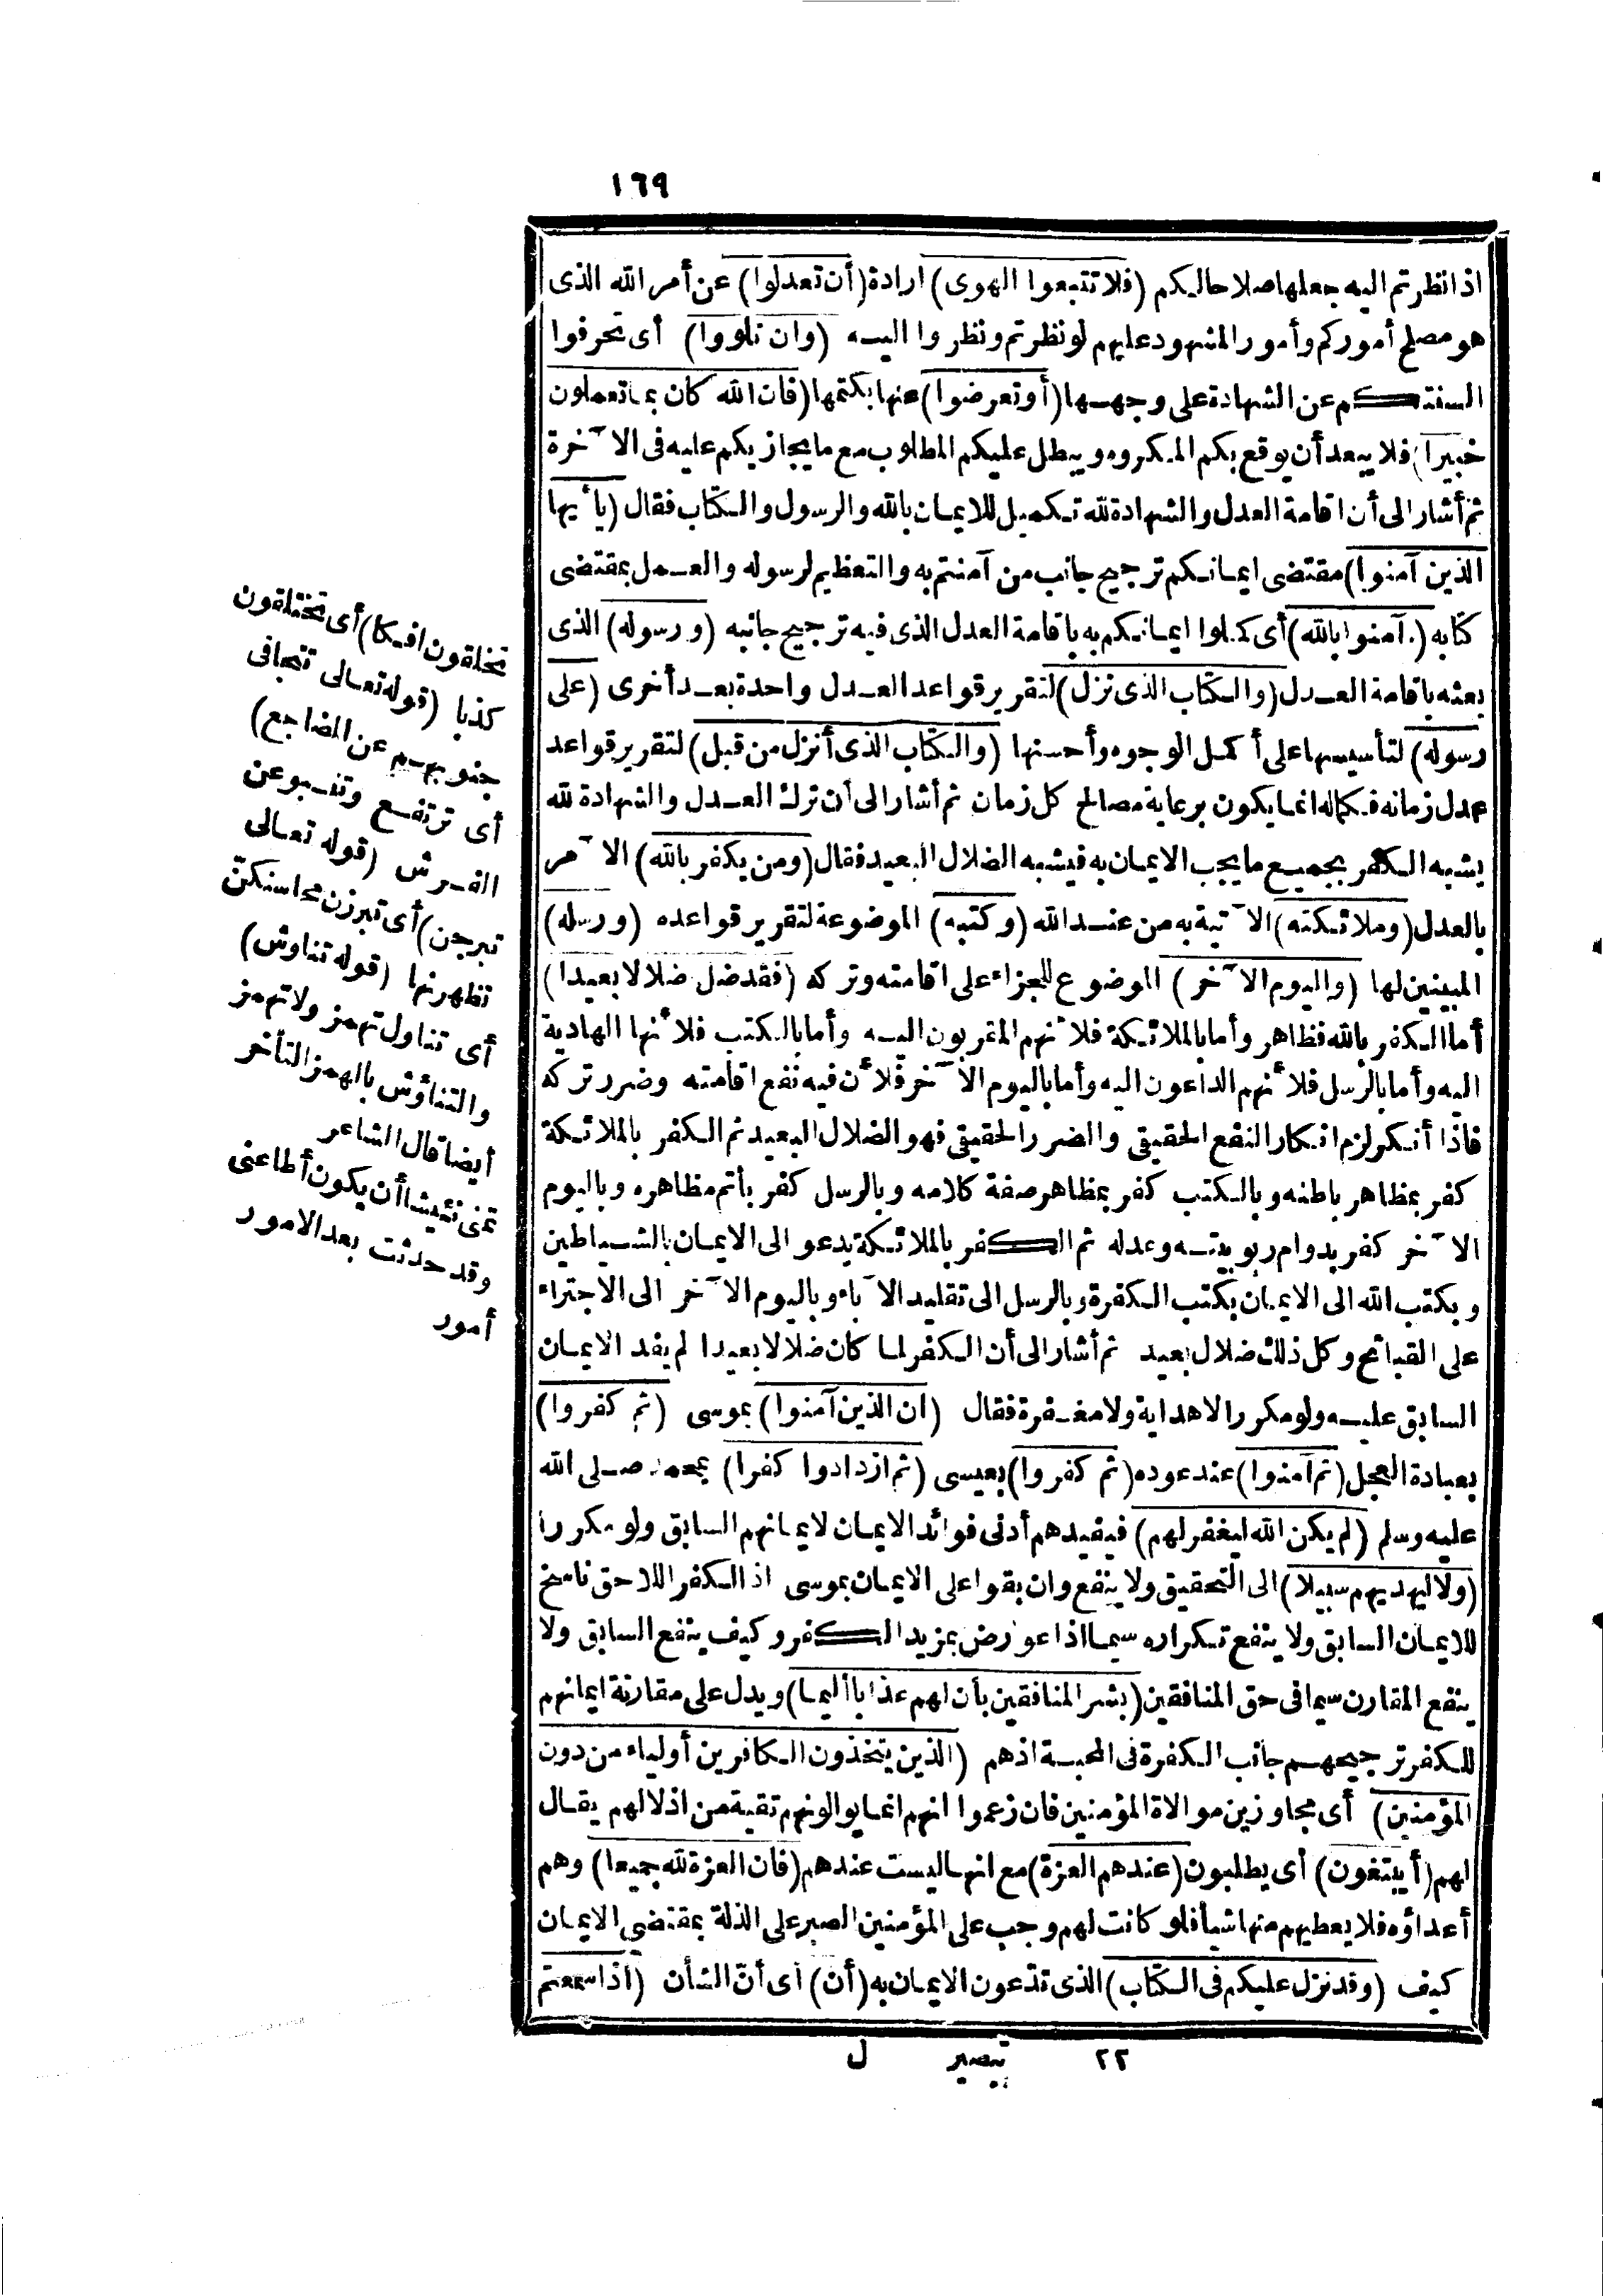 ١٦٩
اذا نظرتم اليه جعلها صلاحا لكم (فلا تتبعوا الهوى) ارادة (أن تعدلوا) عن أمر الله الذى
هو مصلح أموركم وأمور المشهود عليهم لو نظرتم ونظروا اليه (وان تلووا) أى تحرفوا
السنتكم عن الشهادة على وجهها (أو تعرضوا) عنها بكتمها (فان الله كان بما تعملون
خبيرا) فلا يبعد أن يوقع بكم المكروه ويبطل عليكم المطلوب مع ما يجازيكم عليه فى الآخرة
ثم أشار الى أن اقامة العدل والشهادة لله تكميل للايمان بالله والرسول والكتاب فقال (يا أيها
الذين آمنوا) مقتضى ايمانكم ترجيح جانب من آمنتم به والتعظيم لرسوله والعمل بمقتضى
كتابه (آمنوا بالله) أى كملوا ايمانكم به باقامة العدل الذى فيه ترجيح جانبه (ورسوله) الذى
بعثه باقامة العدل (والكتاب الذى نزل) لتقرير قواعد العدل واحدة بعد أخرى (على
رسوله) لتأسيسها على أكمل الوجوه وأحسنها (والكتاب الذى أنزل من قبل) لتقرير قواعد
عدل زمانه فكماله انما يكون برعاية مصالح كل زمان ثم أشار الى أن ترك العدل والشهادة لله
يشبه الكفر بجميع ما يجب الايمان به فيشبه الضلال البعيد فقال (ومن يكفر بالله) الآمر
بالعدل (وملائكته) الآتية به من عند الله (وكتبه) الموضوعة لتقرير قواعده (ورسله)
المبينين لها (واليوم الآخر) الموضوع للجزاء على اقامته وتركه (فقد ضل ضلالا بعيدا)
أما الكفر بالله فظاهر وأما بالملائكة فلأنهم المقربون اليه وأما بالكتب فلأنها الهادية
اليه وأما بالرسل فلأنهم الداعون اليه وأما باليوم الآخر فلأن فيه نفع اقامته وضرر تركه
فاذا أنكر لزم انكار النفع الحقيقى والضرر الحقيقى فهو الضلال البعيد ثم الكفر بالملائكة
كفر بمظاهر باطنه وبالكتب كفر بمظاهر صفة كلامه وبالرسل كفر بأتم مظاهره وباليوم
الآخر كفر بدوام ربوبيته وعدله ثم الكفر بالملائكة يدعو الى الايمان بالشياطين
وبكتب الله الى الايمان بكتب الكفرة وبالرسل الى تقليد الآباء وباليوم الآخر الى الاجتراء
على القبائح وكل ذلك ضلال بعيد ثم أشار الى أن الكفر لما كان ضلالا بعيدا لم يفد الايمان
السابق عليه ولو مكررا لا هداية ولا مغفرة فقال (ان الذين آمنوا) بموسى (ثم كفروا)
بعبادة العجل (ثم آمنوا) عند عوده (ثم كفروا) بعيسى (ثم ازدادوا كفرا) بمحمد صلى الله
عليه وسلم (لم يكن الله ليغفر لهم) فيفيدهم أدنى فوائد الايمان لايمانهم السابق ولو مكررا
(ولا ليهديهم سبيلا) الى التحقيق ولا ينفع وان بقوا على الايمان بموسى اذ الكفر اللاحق ناسخ
للايمان السابق ولا ينفع تكراره سيما اذا عورض بمزيد الكفر وكيف ينفع السابق ولا
ينفع المقارن سيما فى حق المنافقين (بشر المنافقين بأن لهم عذابا أليما) ويدل على مقارنة ايمانهم
للكفر ترجيحهم جانب الكفرة فى المحبة اذهم (الذين يتخذون الكافرين أولياء من دون
المؤمنين) أى مجاوزين موالاة المؤمنين فان زعموا انهم انما يوالونهم تقية من اذلالهم يقال
لهم (أيبتغون) أى يطلبون (عندهم العزة) مع انها ليست عندهم (فان العزة لله جميعا) وهم
أعداؤه فلا يعطيهم منها شيأ فلو كانت لهم وجب على المؤمنين الصبر على الذلة بمقتضى الايمان
كيف (وقد نزل عليكم فى الكتاب) الذى تدعون الايمان به (أن) أى أنّ الشأن (اذا سمعتم
٢٢ تبصير ل
تخلقون افكا) أى تختلقون
كذبا (قوله تعالى تتجافى
جنوبهم عن المضاجع)
أى ترتفع وتنبو عن
الفرش (قوله تعالى
تبرجن) أى تبرزن محاسنكنّ
تظهرنها (قوله تناوش)
أى تناول تهمز ولا تهمز
والتناؤش بالهمز التأخر
أيضا قال الشاعر
تمنى نئيشا أن يكون أطاعنى
وقد حدثت بعد الامور
أمور